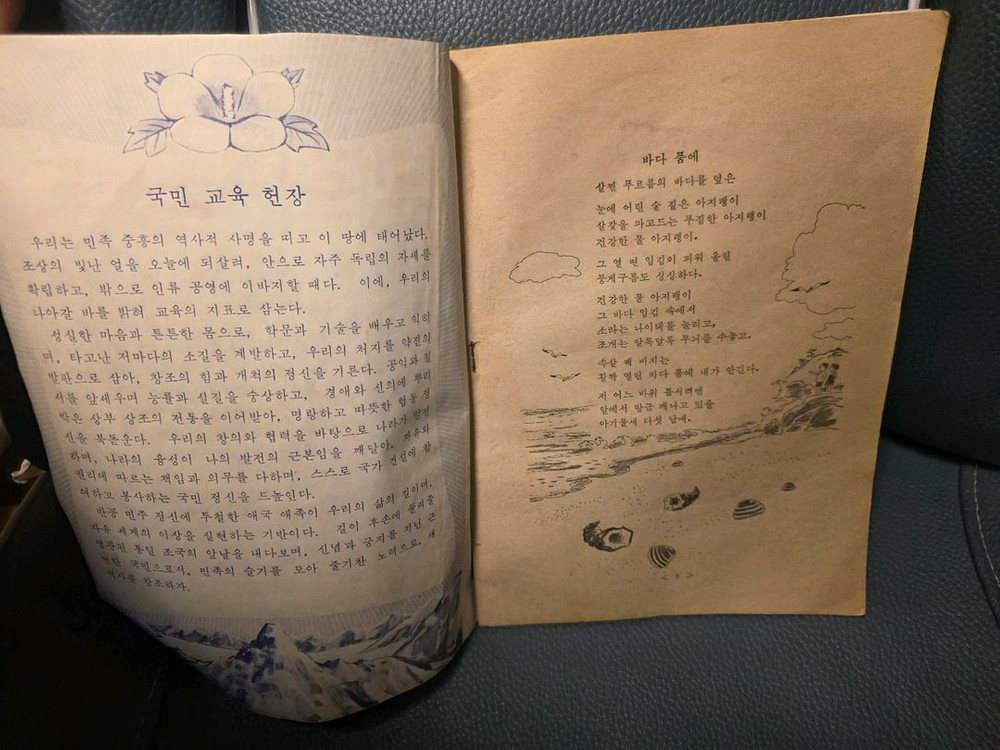 국민 교육 헌장
우리는 민족 중흥의 역사적 사명을 띠고 이 땅에 태어났다.
조상의 빛난 얼을 오늘에 되살려, 안으로 자주 독립의 자세를
확립하고, 밖으로 인류 공영에 이바지할 때다. 이에, 우리의
나아갈 바를 밝혀 교육의 지표로 삼는다.
성실한 마음과 튼튼한 몸으로, 학문과 기술을 배우고 익히
며, 타고난 저마다의 소질을 계발하고, 우리의 처지를 약진의
발판으로 삼아, 창조의 힘과 개척의 정신을 기른다. 공익과 질
서를 앞세우며 능률과 실질을 숭상하고, 경애와 신의에 뿌리
박은 상부 상조의 전통을 이어받아, 명랑하고 따뜻한 협동 정
신을 북돋운다. 우리의 창의와 협력을 바탕으로 나라가 발전
하며, 나라의 융성이 나의 발전의 근본임을 깨달아, 자유와
권리에 따르는 책임과 의무를 다하며, 스스로 국가 건설에 참
여하고 봉사하는 국민 정신을 드높인다.
반공 민주 정신에 투철한 애국 애족이 우리의 삶의 길이며,
자유 세계의 이상을 실현하는 기반이다. 길이 후손에 물려줄
영광된 통일 조국의 앞날을 내다보며, 신념과 긍지를 지닌 근
면한 국민으로서, 민족의 슬기를 모아 줄기찬 노력으로, 새
역사를 창조하자.
바다 품에
살찐 푸르름의 바다를 덮은
눈에 어린 술 짙은 아지랭이
살갗을 파고드는 무짐한 아지랭이
건강한 물 아지랭이.
그 열 띤 입김이 피워 올린
뭉게구름도 싱싱하다.
건강한 물 아지랭이
그 바다 입김 속에서
소라는 나이테를 늘리고,
조개는 알록달록 무늬를 수놓고.
속살 께 비치는
활짝 열린 바다 품에 내가 안긴다.
저 어느 바위 틈서리엔
앞에서 방금 깨나고 있을
아기물새 다섯 남매.
< 3 >